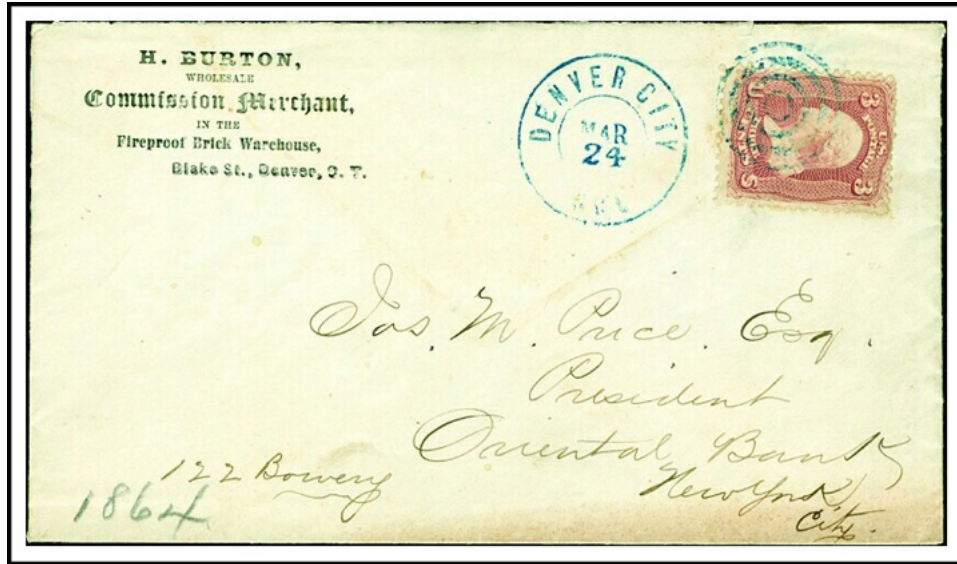 H. BURTON,
WHOLESALE
Commission Merchant,
IN THE
Fireproof Brick Warehouse,
Blake St., Denver, C. T.
DENVER CITY
MAR
24
U.S. POSTAGE
3
3
Jos. M. Price. Esq.
President
Oriental Bank
122 Bowery
New York
City.
1864